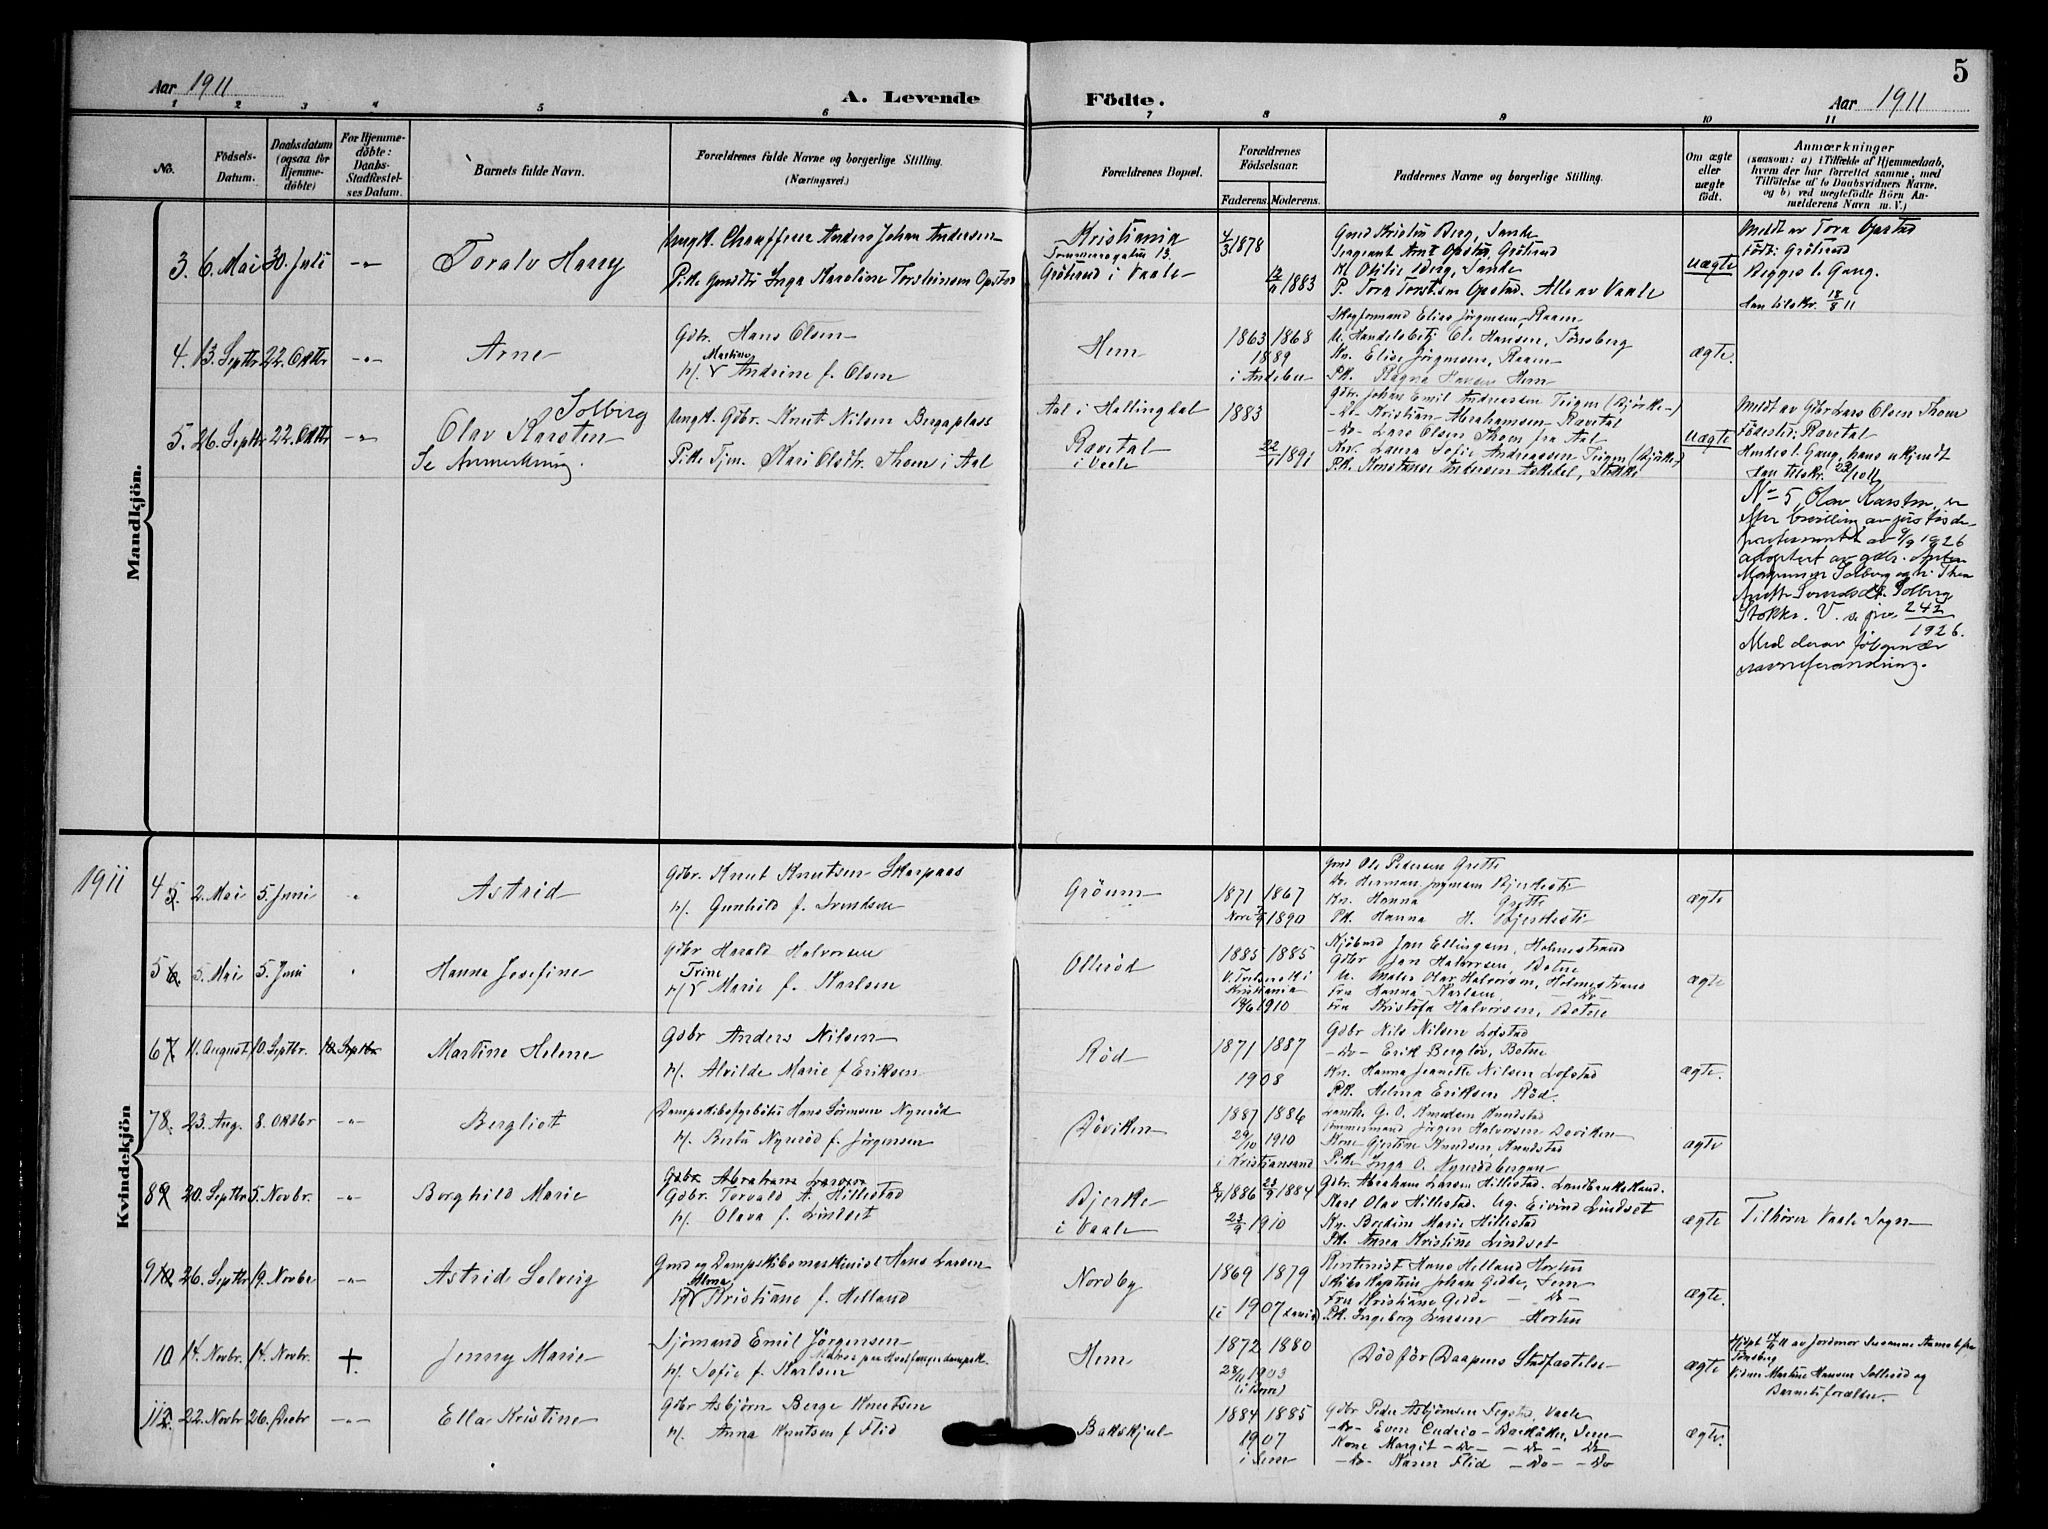 Aar 1911
A. Levende Födte.
Aar 1911
5
1 2 3 4 5 6 7 8 9 10 11
No.
Födsels-
Datum.
Daabsdatum
(ogsaa for
Hjemme-
döbte)
For Hjemme-
döbte:
Daabs-
Stadfæstel-
ses Datum.
Barnets fulde Navn.
Forældrenes fulde Navne og borgerlige Stilling.
(Næringsvei.)
Forældrenes Bopæl.
Forældrenes
Födselsaar.
Faderens. Moderens.
Faddernes Navne og borgerlige Stilling.
Om ægte
eller
uægte
födt.
Anmærkninger
(saasom: a) i Tilfælde af Hjemmedaab,
hvem der har forrettet samme, med
Tilföielse af to Daabsvidners Navne.
og b) ved uægtefödte Börn An-
melderens Navn m. V.)
Mandkjön.
3. 6. Mai 30. Juli -"- Toralv Harry
Ungk. Chauffeur Anders Johan Andersen
Pike Gmdtr Inga Karoline Torstensen Opstad
Kristiania
13.
Gröterud i Vaale
4/3 1878
1883
Gmd Kristin Berg, Sande
Sergeant Arnt Opstad, Gröterud
K. Otilie Berg, Sande
P. Tora Torstensen Opstad. Alle av Vaale
uægte
Meldt av Tora Opstad
Föds: Gröterud
Begges 1. Gang.
18/8 11
4. 13. Septbr 22. Oktbr -"- Arne
Gdbr. Hans Olsen
Martine
H/. Andrine f. Olsen
Hem
1863 1868
1889
i Andebu
Skogformand Elias Jörgensen, Raaen
U. Handelsbetj. Ol. Hansen, Tönsberg
Kn. Elise Jörgensen, Raaen
Pk. Ragna Hansen Hem
ægte.
5. 26. Septbr 22. Oktbr -"- Solberg
Olav Karsten
Se Anmerkning.
Ungk. Gdbr. Knut Nilsen Bergaplass
Pike Tjen. Kari Olsdtr. Thom i Aal
Aal i Hallingdal
Ravital
i Vaale
1883
22/1 1891
Gdbr. Johan Emil Andreassen Teigen (Bjerke-)
-Do- Kristian Abrahamsen Ravital
-Do- Lars Olsen Thom fra Aal
Kn. Laura Sofie Andreassen Teigen (Bjerke)
Pk. Konstanse Andersen Askekel, Stokke
uægte
Meldt av Gbr Lars Olsen Thom
Födested: Ravital
Hendes 1. Gang, hans ukjendt
No 5, Olav Karsten, er
efter bevilling av justisde-
partementet av 8/9 1926
adoptert av gdbr. Anton
Magnussen Solberg og h. Thea
Anette Svendsdt. Solberg
Stokke. V. s. jnr. 242/1926.
Med derav fölgende
navneforandring.
Kvindekjön
1911
4 5. 2. Mai 5. Juni " Astrid
Gdbr. Knut Knutsen Skarpaas
H/. Gunhild f. Svendsen
Gröum
1871 1867
1890
Gmd Ole Pedersen Grette
Do Herman Bjerkesti
Kn. Hanna Grette
Pk. Hanna H. Bjerkesti
ægte
5 6. 5. Mai 5. Juni " Hanna Josefine
Gdbr Harald Halvorsen
Trine
H/ Marie f. Karlsen
Olleröd
1885 1885
Kristiania
1910
Kjöbmd Jan Ellingsen, Holmestrand
Gdbr Jan Halvorsen, Botne
U. Maler Olav Halvorsen, Holmestrand
Fru Hanna Karlsen -Do-
Fru Kristofa Halvorsen, Botne
ægte
6 7 11. August 10. Septbr. 10 Septbr Martine Helene
Gdbr Anders Nilsen
H/. Alvilde Marie f Eriksen
Röd
1871 1887
1908
Gdbr Nils Nilsen Lofstad
-Do- Erik Berglöv, Botne
Kn. Hanna Jeanette Nilsen Lofstad
Pk. Helma Eriksen Röd.
ægte.
7 8. 23. Aug. 8. Oktbr -"- Bergliot
Dampskibsfyrböter Hans Sörensen Nyseröd
H/. Berta Nyseröd f. Jörgensen
Döviken
1887 1886
29/10 1910
i Kristiansand
Landh. G. O. Knudsen Knudstad
Tömmermand Jörgen Halvorsen Doviken
Kone Gjertine Knudsen, Knudstad
Pike Inga O. Nyserödbergen
ægte
8 9 20. Septbr 5. Novbr. -"- Borghild Marie
Gdbr Abraham Larsen
Gdbr. Torvald A. Hillestad
H/. Olava f. Lindset
Bjerke
i Vaale
1886 1884
23/9 1910
Gdbr. Abraham Larsen Hillestad. Landbruksskand.
Karl Olav Hillestad. Ug. Eivind Lindset
Kn. Bredine Marie Hillestad
Pk. Anna Kristine Lindset
ægte
Tilhörer Vaale Sogn
9 10 26. Septbr 19. Novbr -"- Astrid Solveig
Gmd og Dampskibsmaskinist Hans Larsen
Alma
H/ Kristiane f. Helland
Nordby
1869 1879
1907
Rentenist Hans Helland Horten
Skibskaptein Johan Gedde, Sem
Fru Kristiane Gedde -Do-
Pk. Ingeborg Larsen Horten
ægte.
10 14. Novbr. 14. Novbr. + Jenny Marie
Sjömand Emil Jörgensen
Matros paa Hvalfangerdampsk.
H/. Sofie f. Karlsen
Hem
1872 1880
28/11 1903
Död för Daapens Stadfæstelse
ægte
Hjdpt 14/11 av Jordmor Susanne
Tönsberg
Vidner Martine Hansen Solleröd og
Barnets forældre.
11 12. 22. Novbr 26. Decbr -"- Ella Kristine
Gdbr Asbjörn Berge Knutsen
H/. Anna Knutsen f Flid
Bakskjul
1884 1885
1907
i Sem
Gdbr Peder Asbjörnsen Fegstad, Vaale
-Do- Even Barkaker, Sem
Kone Margit -Do- -Do- Do
-Do- Karen Flid -Do- -Do
ægte.